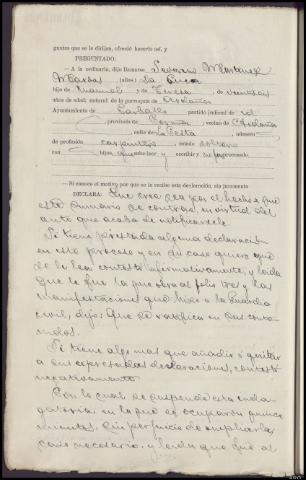 guntas que se le dirijan, ofreció hacerlo así, y
PREGUNTADO:
—A lo ordinario, dijo llamarse Severino Martinez
(alias) La Cuca
hijo de Manuel, y de Teresa, de veintiseis
años de edad, natural de la parroquia de
Ayuntamiento de partido judicial de id
, provincia de Coruña, vecino de
, calle de la Cesta, número
de profesión carpintero, estado soltero
con hijos, que sabe leer y escribir y no procesado
—Si conoce el motivo por que se le recibe esta declaración, sin juramento
DECLARA: Que cree sea por el hecho que
este sumario de contrae, en virtud del
auto que acaba de notificársele.
Si tiene prestada alguna declaración
en este proceso y en su caso quiere que
se le lea contestó afirmativamente, y leida
que le fué la que obra al folio tres y las
manifestaciones que hizo a la Guardia
civil, dijo: Que se ratifica en sus conte-
nidos.
Si tiene algo mas que añadir ó quitar
a sus expresadas declaraciones, contestó
negativamente.
Con lo cual se suspende esta inda-
gatoria en la que se ocuparon quince
minutos, sin perjuicio de ampliarla
caso necesario, y leida que fué al